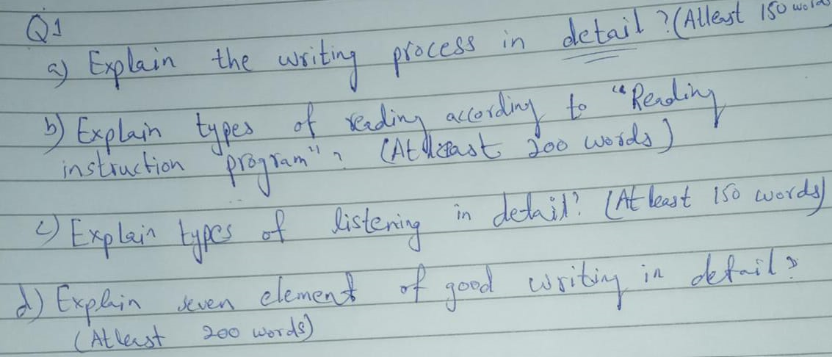 Q1
a) Explain the writing process in detail? (Atleast 150 words
b) Explain types of reading according to "Reading
instruction program"? (At least 200 words)
c) Explain types of listening in detail? (At least 150 words)
d) Explain seven element of good writing in detail?
(Atleast 200 words)